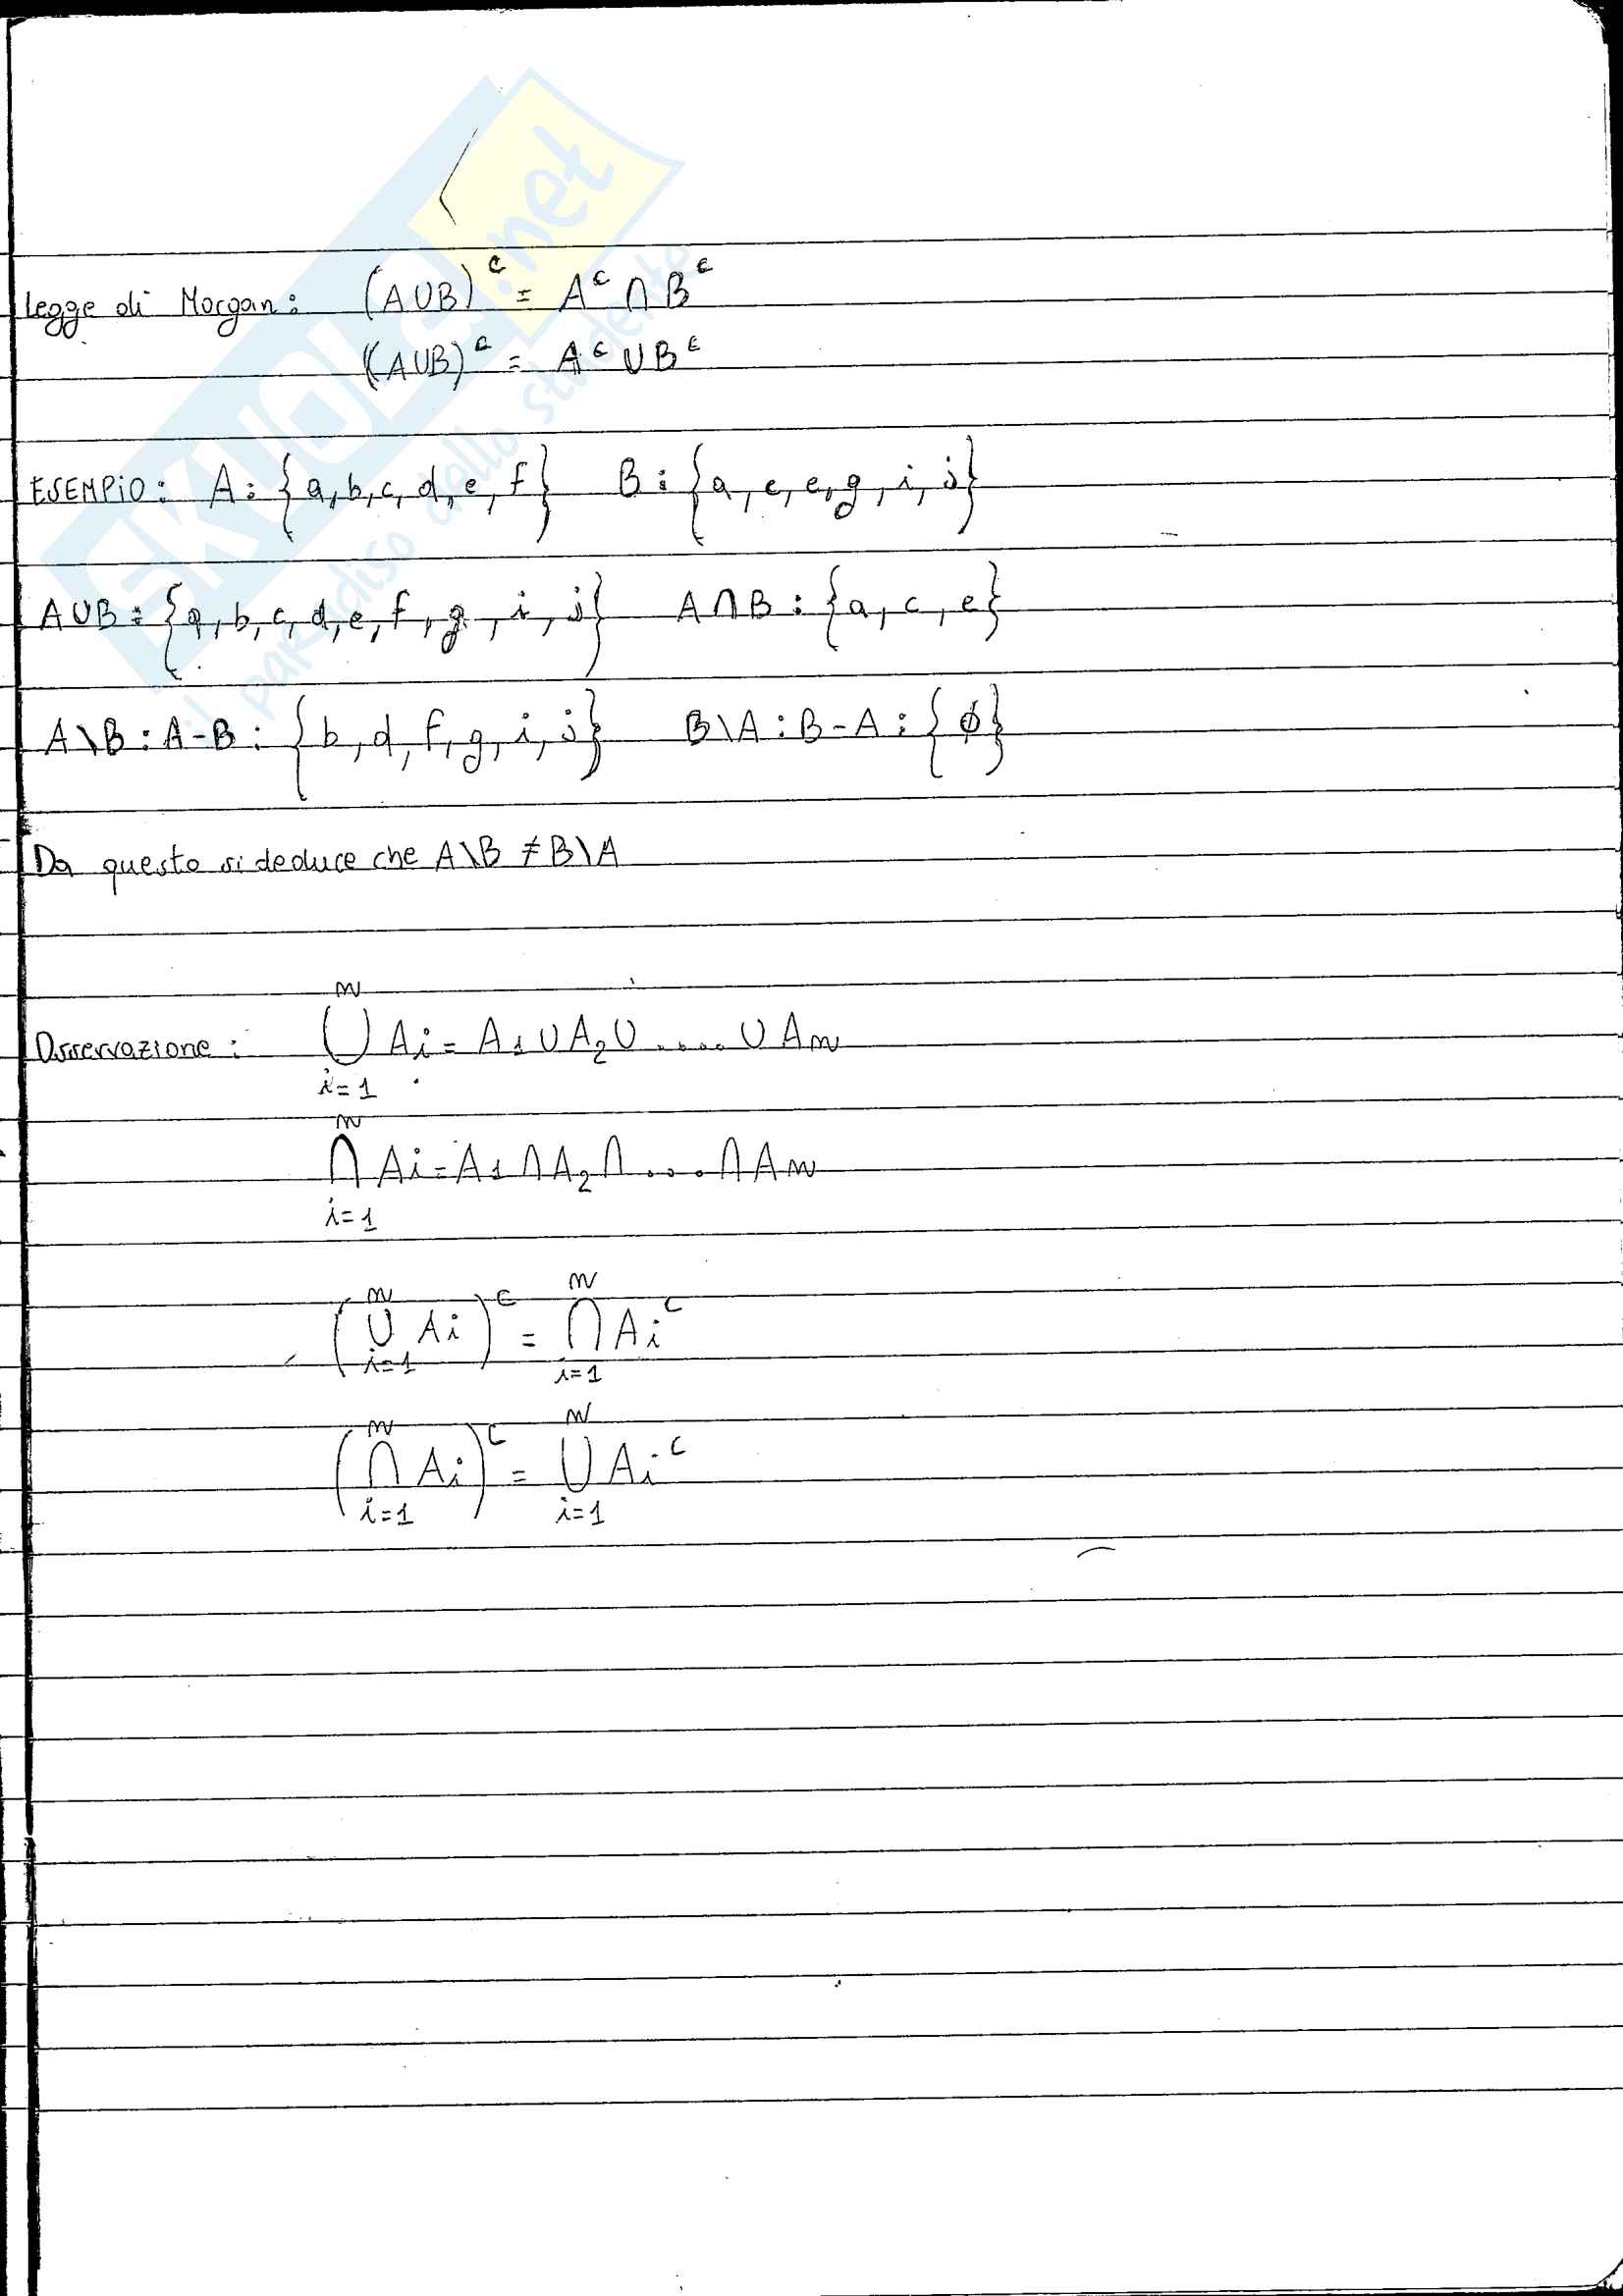 SKUOLA.net
il paradiso dello studente
Legge di Morgan: (A∪B)ᶜ = Aᶜ ∩ Bᶜ
((A∪B)ᶜ = Aᶜ ∪ Bᶜ
ESEMPIO: A: {a, b, c, d, e, f} B: {a, c, e, g, i, j}
A∪B: {a, b, c, d, e, f, g, i, j} A∩B: {a, c, e}
A\B: A-B: {b, d, f, g, i, j} B\A: B-A: {ϕ}
Da questo si deduce che A\B ≠ B\A
n
Osservazione: ⋃ Ai = A1 ∪ A2 ∪ ..... ∪ An
i=1
n
⋂ Ai = A1 ∩ A2 ∩ .... ∩ An
i=1
n n
(⋃ Ai)ᶜ = ⋂ Aiᶜ
i=1 i=1
n n
(⋂ Ai)ᶜ = ⋃ Aiᶜ
i=1 i=1